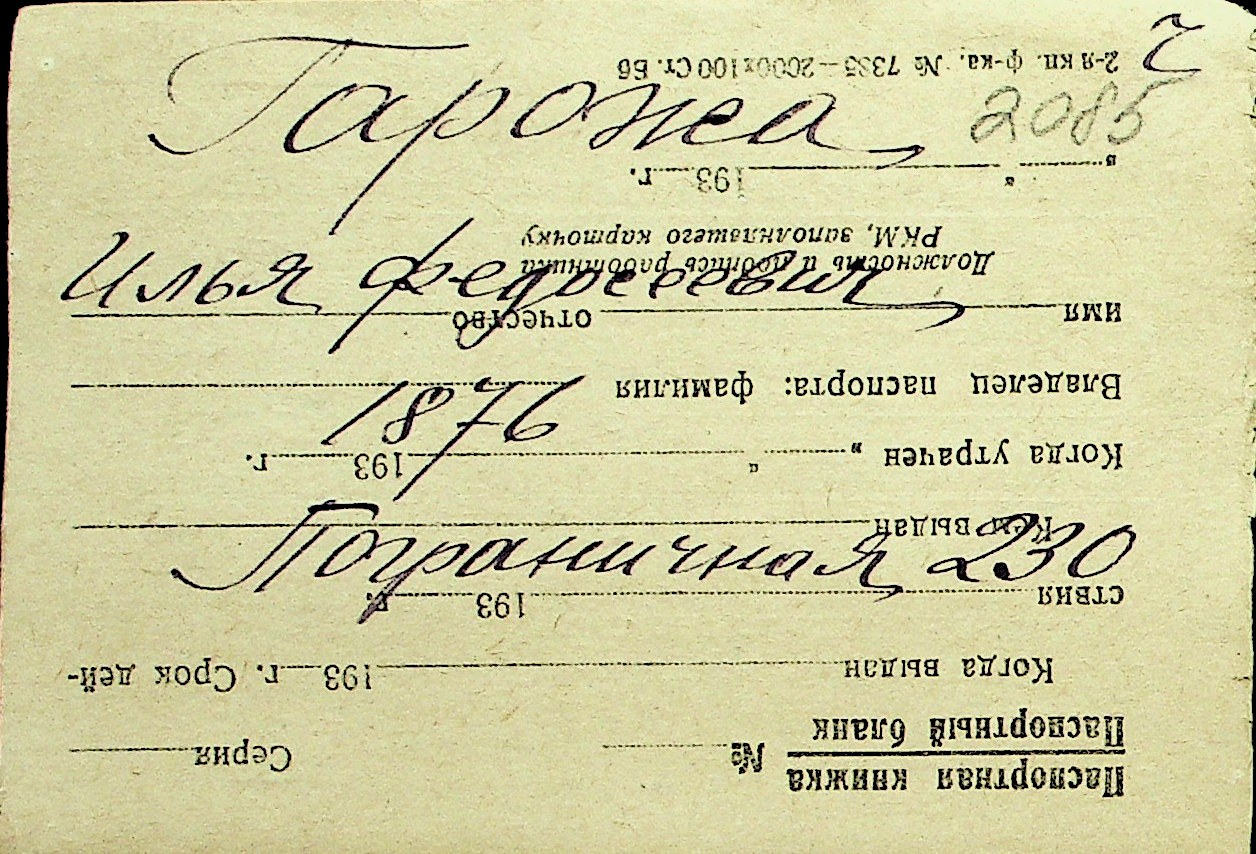 Гарожа 2085
Илья Федосеевич
1876
Пограничная 230
Паспортная книжка
Паспортный бланк № Серия
Когда выдан 193 г. Срок дей-
ствия 193 г.
Кем выдан
Когда утрачен „ “ 193 г.
Владелец паспорта: фамилия
имя отчество
Должность и подпись работника
РКМ, заполнявшего карточку
„ “ 193 г.
2-я кп. ф-ка. № 7335—2000х100 Ст. Бб